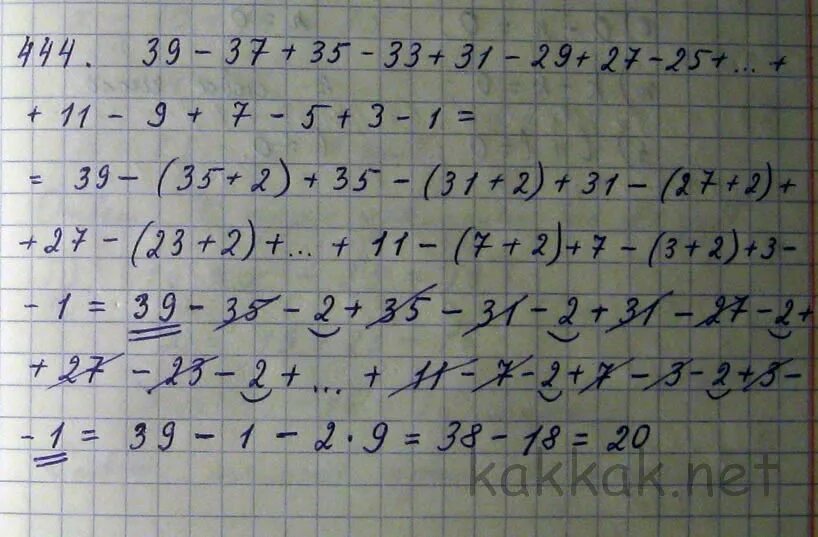 444. 39 - 37 + 35 - 33 + 31 - 29 + 27 - 25 + ... +
+ 11 - 9 + 7 - 5 + 3 - 1 =
= 39 - (35 + 2) + 35 - (31 + 2) + 31 - (27 + 2) +
+ 27 - (23 + 2) + ... + 11 - (7 + 2) + 7 - (3 + 2) + 3 -
- 1 = 39 - 35 - 2 + 35 - 31 - 2 + 31 - 27 - 2 +
+ 27 - 23 - 2 + ... + 11 - 7 - 2 + 7 - 3 - 2 + 3 -
- 1 = 39 - 1 - 2 · 9 = 38 - 18 = 20
kakkak.net